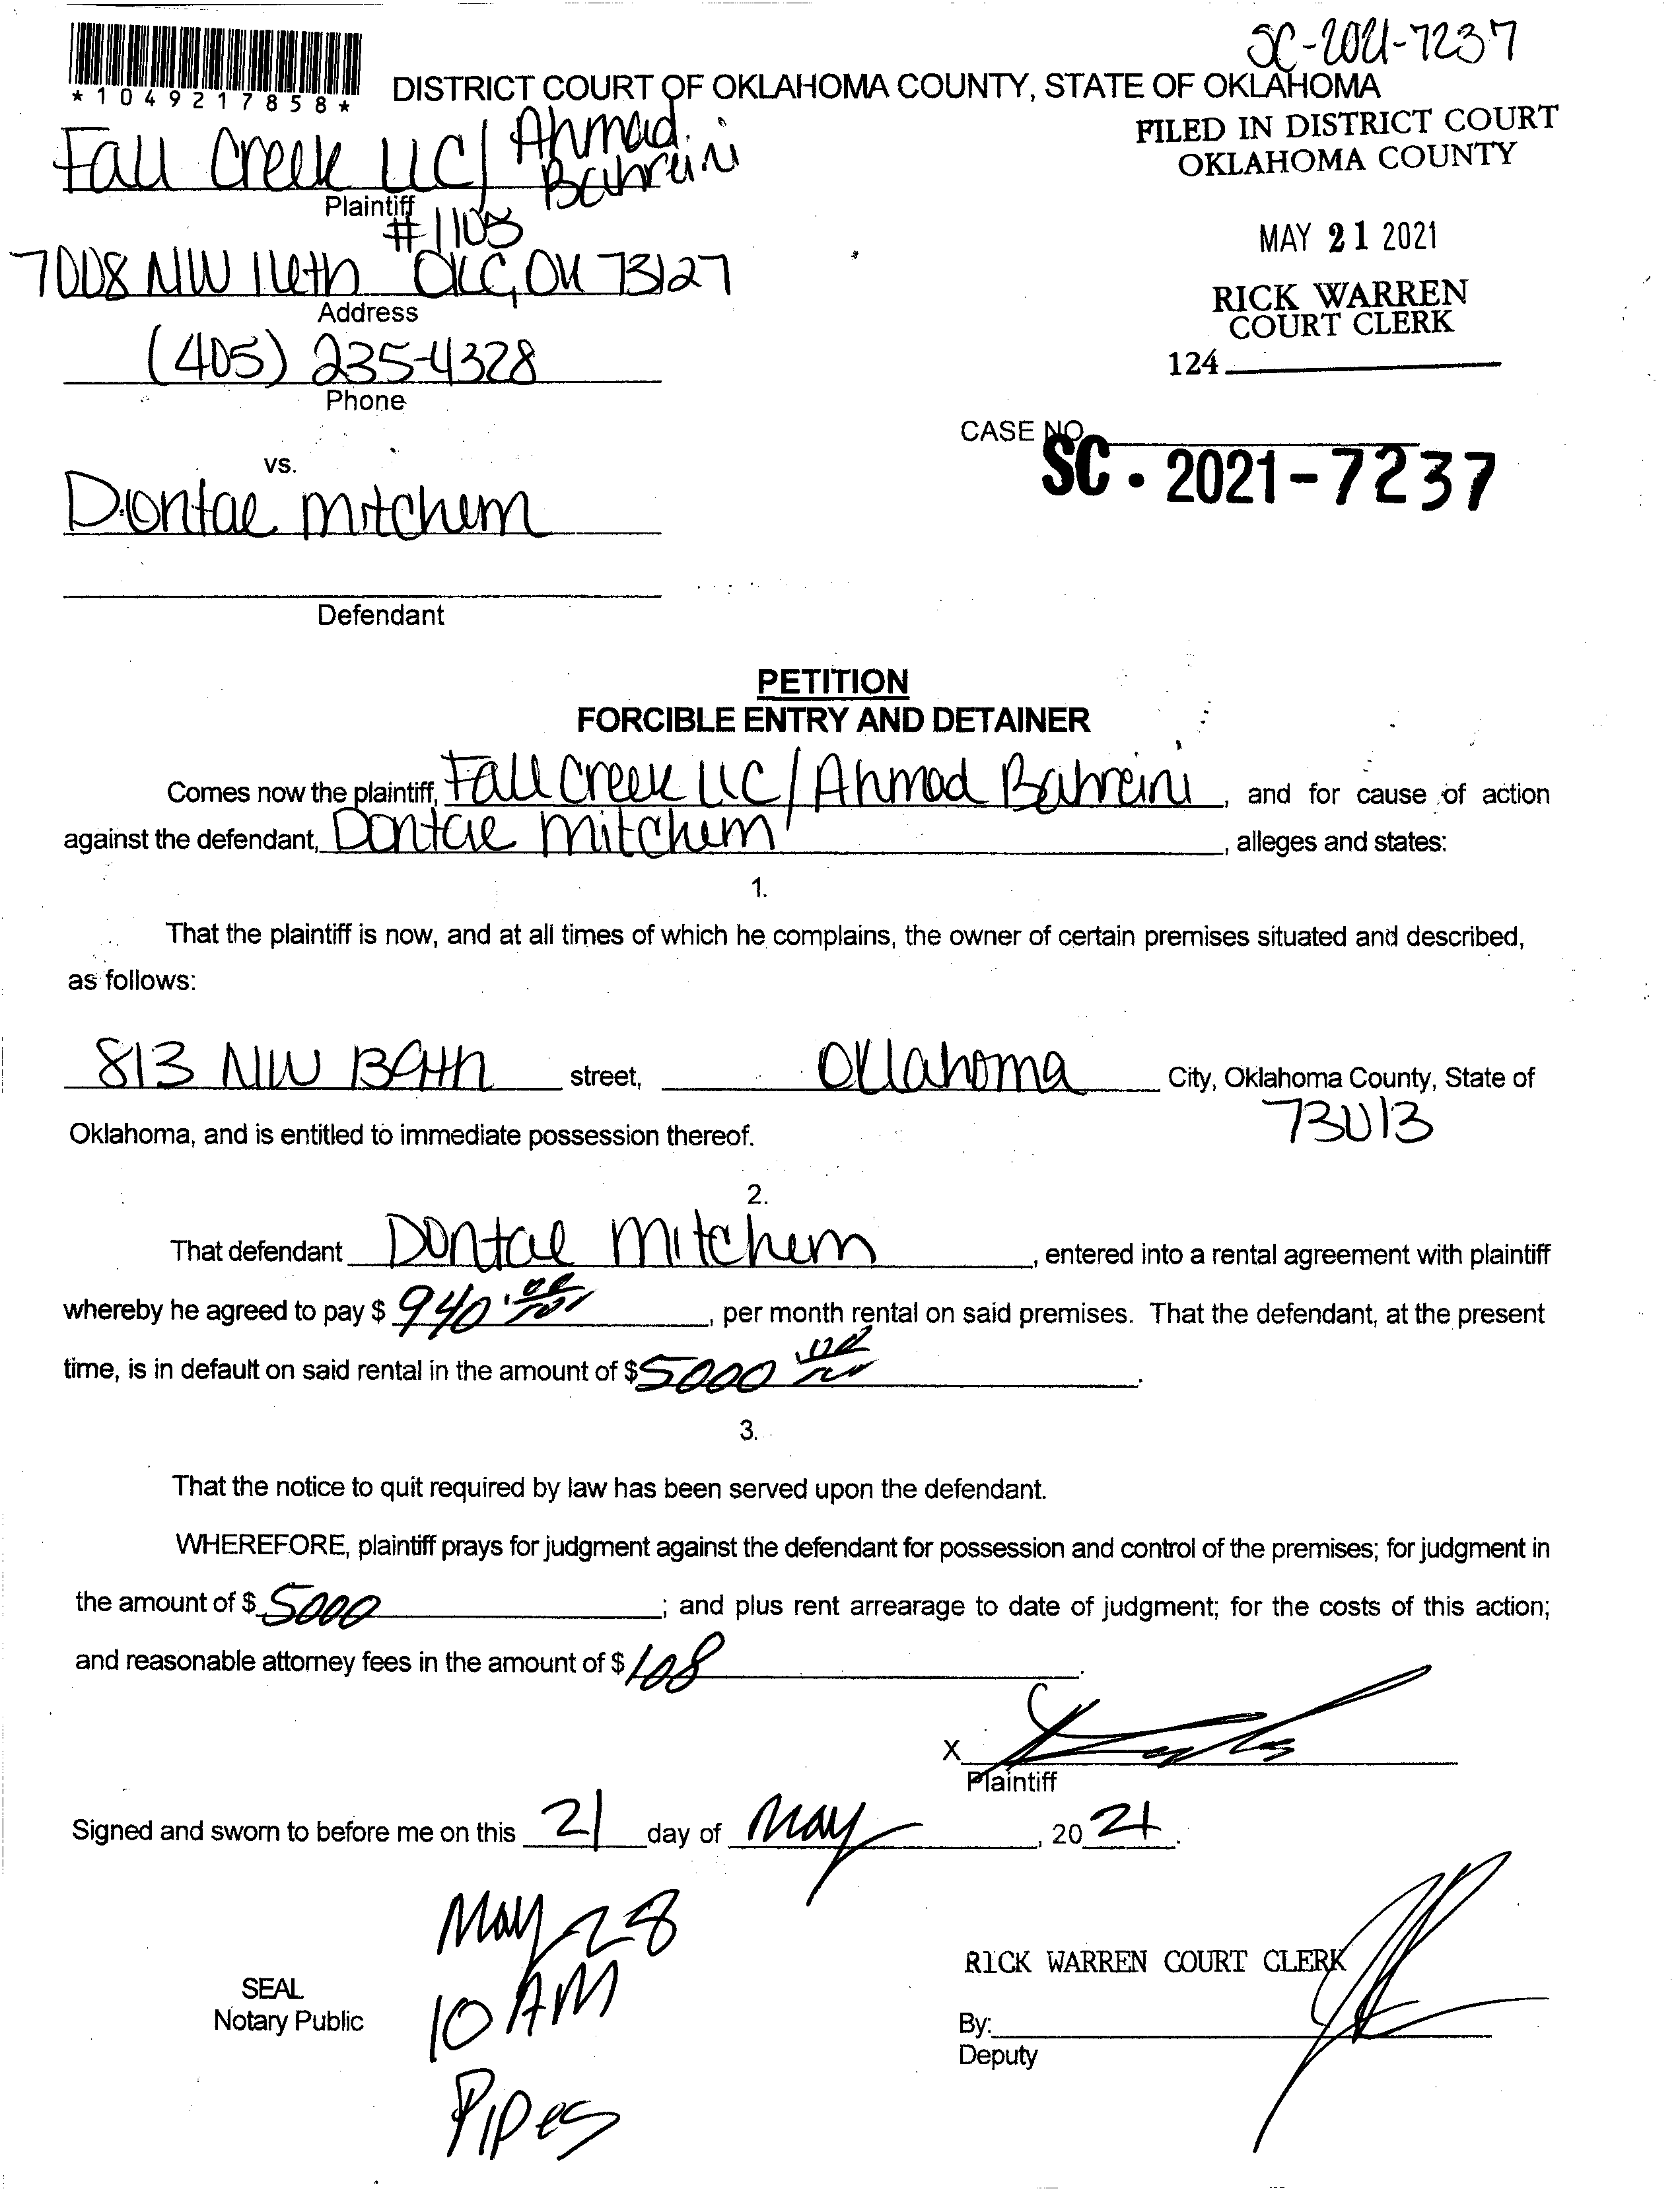 SC-2021-7237
*1049217858*
DISTRICT COURT OF OKLAHOMA COUNTY, STATE OF OKLAHOMA
FILED IN DISTRICT COURT
OKLAHOMA COUNTY
Fall Creek LLC/ Ahmad
Bahreini
Plaintiff
#1105
MAY 21 2021
7008 NW 16th OKC, OK 73127
Address
RICK WARREN
COURT CLERK
(405) 235-4328
124
Phone
CASE NO.
SC-2021-7237
vs.
Dontae Mitchem
Defendant
PETITION
FORCIBLE ENTRY AND DETAINER
Comes now the plaintiff, Fall Creek LLC/Ahmad Bahreini, and for cause of action
against the defendant, Dontae Mitchem, alleges and states:
1.
That the plaintiff is now, and at all times of which he complains, the owner of certain premises situated and described,
as follows:
813 NW street, Oklahoma City, Oklahoma County, State of
Oklahoma, and is entitled to immediate possession thereof.
2.
That defendant Dontae Mitchem, entered into a rental agreement with plaintiff
whereby he agreed to pay $ 940, per month rental on said premises. That the defendant, at the present
time, is in default on said rental in the amount of $5000.
3.
That the notice to quit required by law has been served upon the defendant.
WHEREFORE, plaintiff prays for judgment against the defendant for possession and control of the premises; for judgment in
the amount of $ 5000; and plus rent arrearage to date of judgment; for the costs of this action;
and reasonable attorney fees in the amount of $ 108.
X
Plaintiff
Signed and sworn to before me on this 21 day of May, 2021.
May 28
10 AM
Pipes
SEAL
Notary Public
RICK WARREN COURT CLERK
By:
Deputy